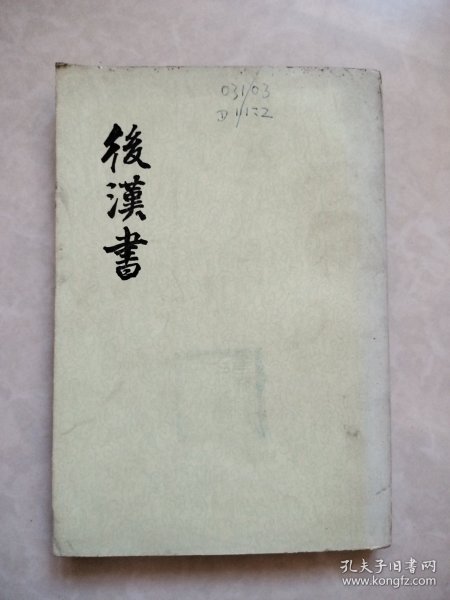 031/03
後漢書
孔夫子旧书网
www.kongfz.com